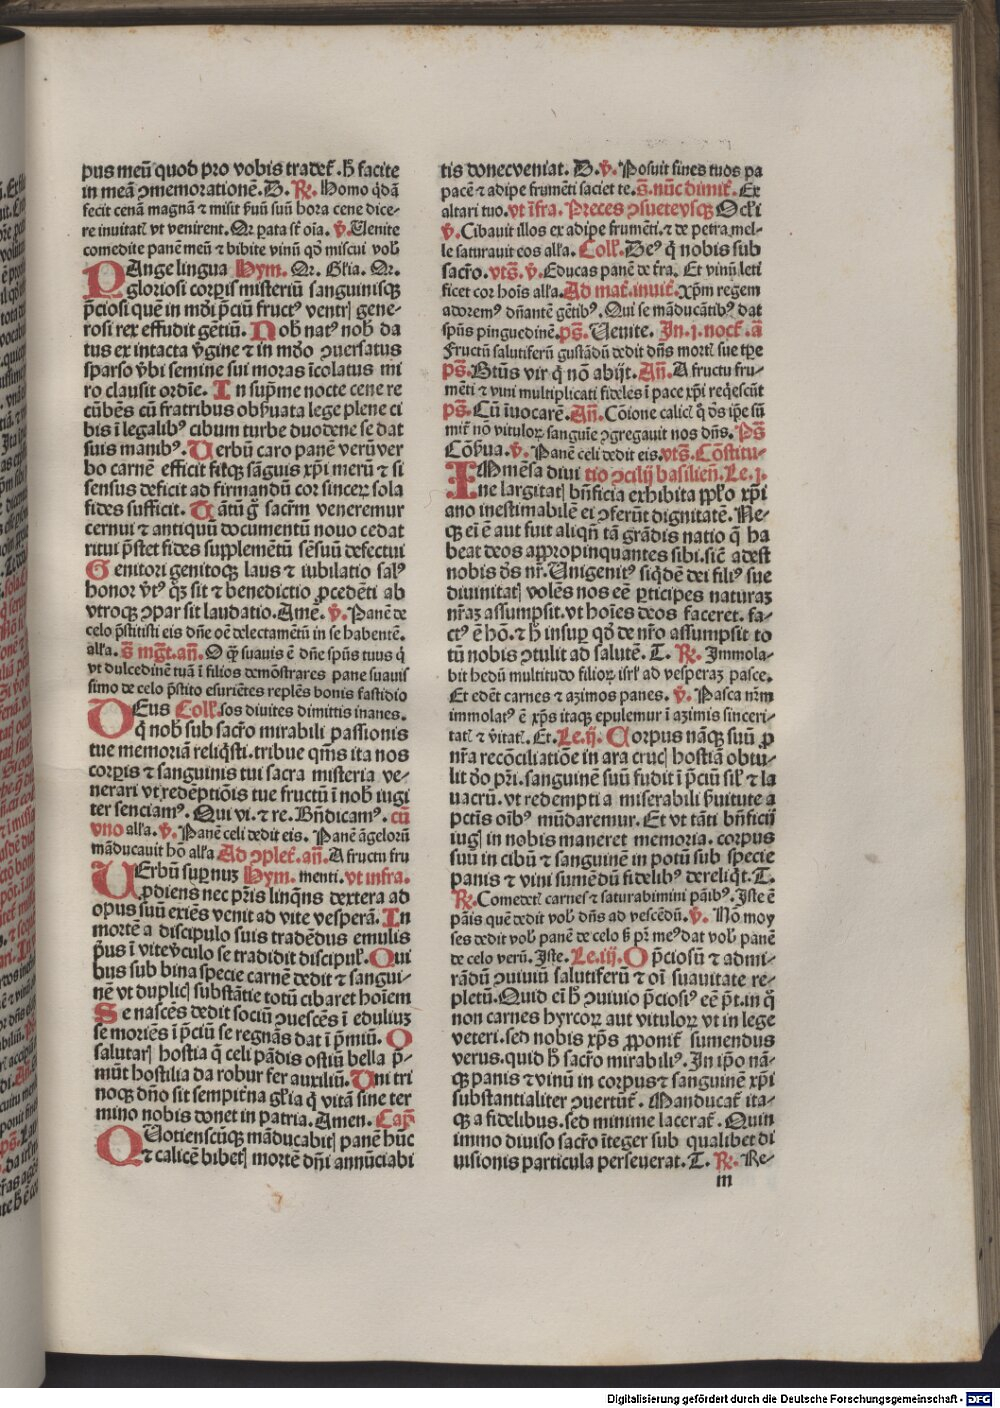 pus meū quod pro vobis tradet᷑. h̄ facite
in meā ꝯmemorationē. D. ℟. Homo q̇dā
fecit cenā magnā ⁊ misit ẜuū suū hora cene dice-
re inuitatꝭ vt venirent. Qꝛ ꝑata st̄ oīa. v̄. Uenite
comedite panē meū ⁊ bibite vinū qḋ miscui vob̄
PAnge lingua Hym. Qꝛ. Gl̄ia. Qꝛ.
gloriosi corꝑis misteriū sanguinisqꝫ
p̄ciosi quē in mūdi p̄ciū fructꝰ ventrꝭ gene-
rosi rex effudit gētiū. Nob̄ natꝰ nob̄ da
tus ex intacta v̄gine ⁊ in mūdo ꝯuersatus
sparso v̄bi semine sui moras īcolatus mi
ro clausit ordīe. In sup̄me nocte cene re
cūbēs cū fratribus obẜuata lege plene ci
bis ī legalibꝰ cibum turbe duodene se dat
suis manibꝰ. Uerbū caro panē verū ver
bo carnē efficit fitqꝫ sāguis xp̄i merū ⁊ si
sensus deficit ad firmandū cor sinceꝝ sola
fides sufficit. Tātū g̊ sacrm̄ veneremur
cernui ⁊ antiquū documentū nouo cedat
ritui p̄stet fides supplementū sēsuū defectui
Genitori genitoqꝫ laus ⁊ iubilatio salꝰ
honor v̄tꝰ qꝫ sit ⁊ benedictio ꝓcedēti ab
vtroqꝫ ꝯpar sit laudatio. Amē. v̄. Panē de
celo p̄stitisti eis dn̄e oē delectamētū in se habentē.
all̓a. S̄ mgt̄. an̄. O qꝫ suauis ē dn̄e sp̄us tuus q̇
vt dulcedinē tuā ī filios demōstrares pane suauis
simo de celo p̄stito esuriētes replēs bonis fastidio
DEus Coll̓. sos diuites dimittis inanes.
q̇ nob̄ sub sacr̄o mirabili passionis
tue memoriā reliq̇sti. tribue qm̄s ita nos
corꝑis ⁊ sanguinis tui sacra misteria ve-
nerari vt redēptiōis tue fructū ī nob̄ iugi
ter senciamꝰ. Qui vi. ⁊ re. Bn̄dicamꝰ. cū
vno all̓a. v̄. Panē celi dedit eis. Panē āgeloꝝ
māducauit ho all̓a Ad ꝯplet᷑. an̄. A fructu fru
UErbū suꝑnuꝫ Hym. menti. vt infra.
ꝓdiens nec pr̄is linq̄ns dextera ad
opus suū exiēs venit ad vite vesperā. In
mortē a discipulo suis tradēdus emulis
p̄us ī vite v̄culo se tradidit discipul̓. Qui
bus sub bina specie carnē dedit ⁊ sangui-
nē vt duplicꝭ substātie totū cibaret hoīem
Se nascēs dedit sociū ꝯuescēs ī eduliuꝫ
se moriēs ī p̄ciū se regnās dat ī p̄miū. O
salutarꝭ hostia q̄ celi pādis ostiū bella p̄-
mūt hostilia da robur fer auxiliū. Uni tri
noqꝫ dn̄o sit sempit᷑na gl̄ia q̇ vitā sine ter
mino nobis donet in patria. Amen. Cap̄
QUotienscūqꝫ māducabitꝭ panē hūc
⁊ calicē bibetꝭ mortē dn̄i annūciabi
tis donec veniat. D. v̄. Posuit fines tuos pa
pacē ⁊ adipe frumēti saciet te. S̄. nūc dimit᷑. Ex
altari tuo. vt īfra. Preces ꝯsuete vsqꝫ Ocl̓i
v̄. Cibauit illos ex adipe frumēti. ⁊ de petra mel-
le saturauit eos all̓a. Coll̓. Deꝰ q̇ nobis sub
sacr̄o. vts̄. v̄. Educas panē de t̄ra. Et vinū leti
ficet cor hoīs all̓a. Ad mat᷑. inuit᷑. Xp̄m regem
adoremꝰ dn̄antē gētibꝰ. Qui se māducātibꝰ dat
sp̄us pinguedinē. ps̄. Uenite. In. j. noct᷑. an̄
Fructū salutiferū gustādū dedit dn̄s mortꝭ sue tꝑe
ps̄. Btūs vir q̇ nō abijt. An̄. A fructu fru-
mēti ⁊ vini multiplicati fideles ī pace xp̄i req̇escūt
ps̄. Cū īuocarē. An̄. Cōione calicꝭ q̊ ds̄ ip̄e sū
mit᷑ nō vituloꝝ sanguīe ꝯgregauit nos dn̄s. Ps̄
Cōẜua. v̄. Panē celi dedit eis. vts̄. Cōstitu-
IMmēsa diui tio ꝯcilij basilien̄. Le. j.
ne largitatꝭ bn̄ficia exhibita pp̄lo xp̄i
ano inestimabilē ei ꝯferūt dignitatē. Ne-
qꝫ eī ē aut fuit aliqn̄ tā grādis natio q̄ ha
beat deos appropinquantes sibi. sic̄ adest
nobis ds̄ nr̄. Unigenitꝰ siq̇dē dei filiꝰ sue
diuinitatꝭ volēs nos eē ꝑticipes naturaꝫ
nr̄aꝫ assumpsit. vt hoīes deos faceret. fa-
ctꝰ ē hō. ⁊ h̄ insuꝑ qḋ de nr̄o assumpsit to
tū nobis ꝯtulit ad salutē. T. ℟. Immola-
bit hedū multitudo filioꝝ isrl̓ ad vesperaꝫ pasce.
Et edēt carnes ⁊ azimos panes. v̄. Pasca nr̄m
immolatꝰ ē xp̄s itaqꝫ epulemur ī azimis sinceri-
tatꝭ ⁊ v̄itatꝭ. Et. Le. ij. Corpus nāqꝫ suū ꝓ
nr̄a recōciliatiōe in ara crucꝭ hostiā obtu-
lit do̊ pr̄i. sanguinē suū fudit ī p̄ciū sil̓ ⁊ la
uacrū. vt redempti a miserabili ẜuitute a
pctīs oībꝰ mūdaremur. Et vt tāti bn̄ficij
iugꝭ in nobis maneret memoria. corpus
suū in cibū ⁊ sanguinē in potū sub specie
panis ⁊ vini sumēdū fidelibꝰ dereliq̇t. T.
℟. Comedetꝭ carnes ⁊ saturabimini panībꝰ. Iste ē
pānis quē dedit vob̄ dn̄s ad vescēdū. v̄. Nō moy
ses dedit vob̄ panē de celo ẜ pr̄ meꝰ dat vob̄ panē
de celo verū. Iste. Le. iij. O p̄ciosū ⁊ admi-
rādū ꝯuiuiū salutiferū ⁊ oī suauitate re-
pletū. Quid eī h̄ ꝯuiuio p̄ciosiꝰ eē p̄t. in q̊
non carnes hyrcoꝝ aut vituloꝝ vt in lege
veteri. sed nobis xp̄s ꝓponit᷑ sumendus
verus. quid h̄ sacr̄o mirabiliꝰ. In ip̄o nā-
qꝫ panis ⁊ vinū in corpus ⁊ sanguinē xp̄i
substantialiter ꝯuertūt᷑. Manducat᷑ ita-
qꝫ a fidelibus. sed minime lacerat᷑. Quin
immo diuiso sacr̄o īteger sub qualibet di
uisionis particula perseuerat. T. ℟. Re-
m
Digitalisierung gefördert durch die Deutsche Forschungsgemeinschaft - DFG